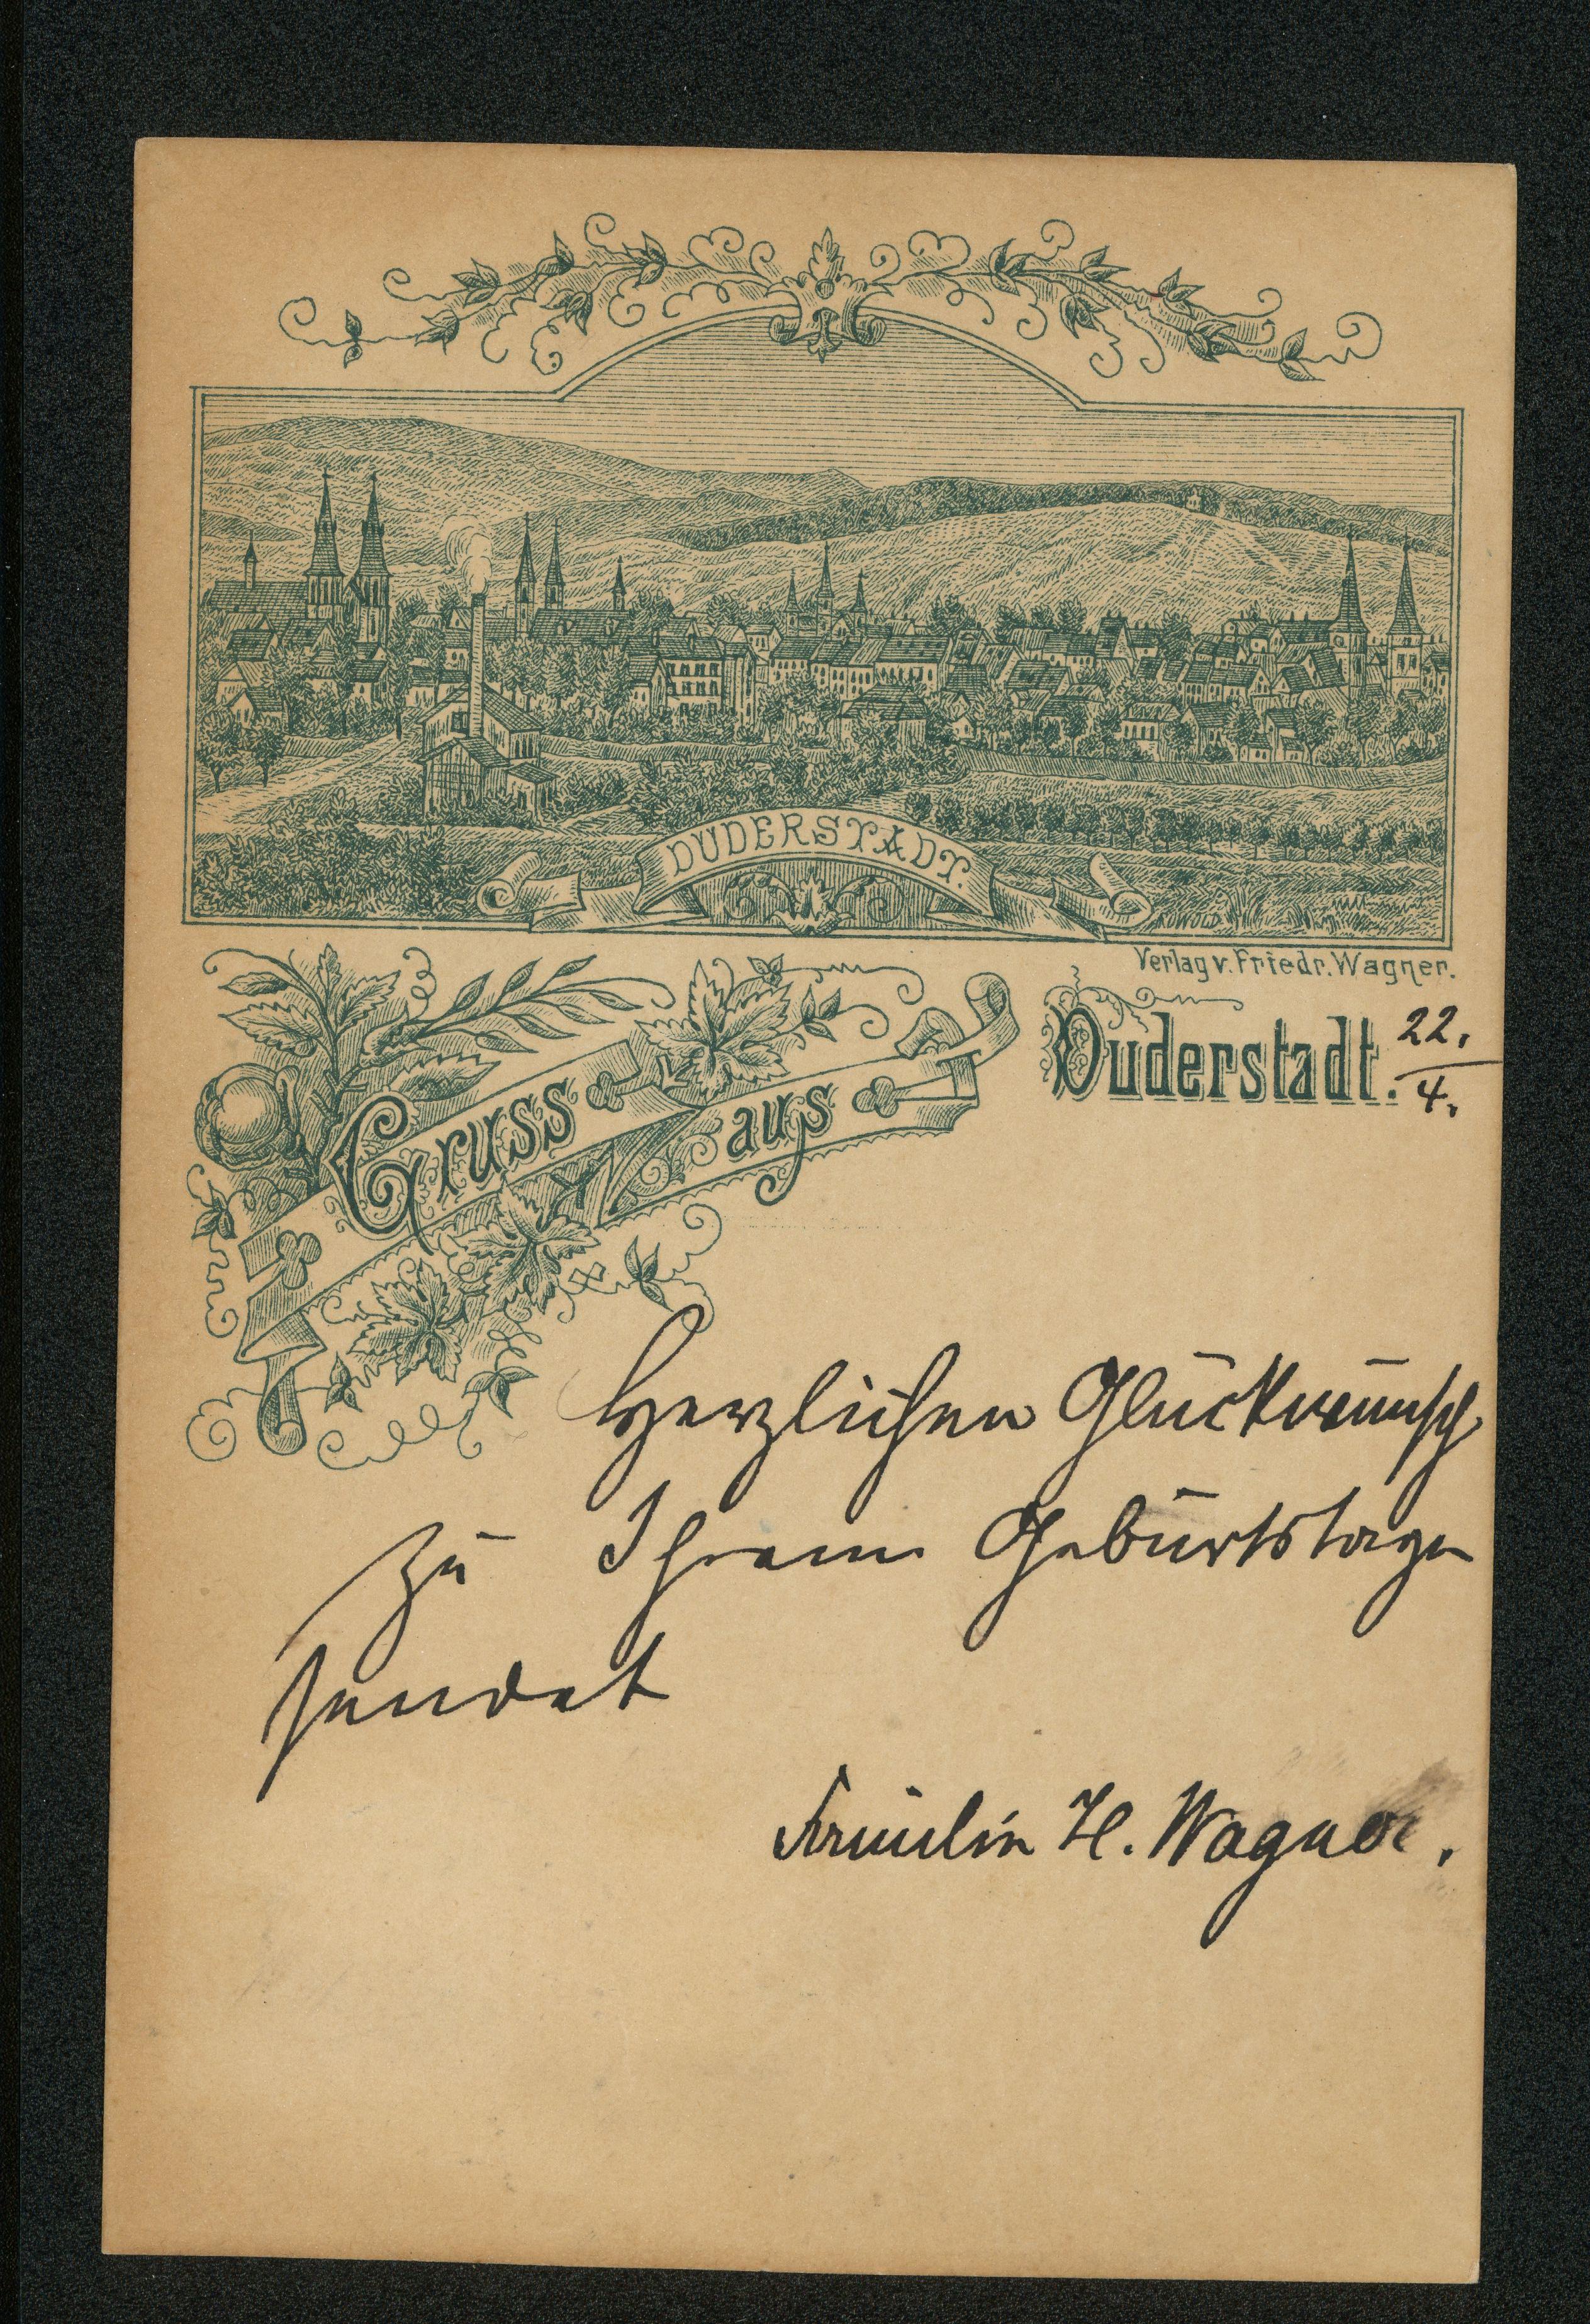 DUDERSTADT.
Verlag v. Friedr. Wagner.
Gruss aus Duderstadt. 22./4.
Herzlichen Glückwunsch
zu Ihrem Geburtstage
sendet
Fräulein H. Wagner.